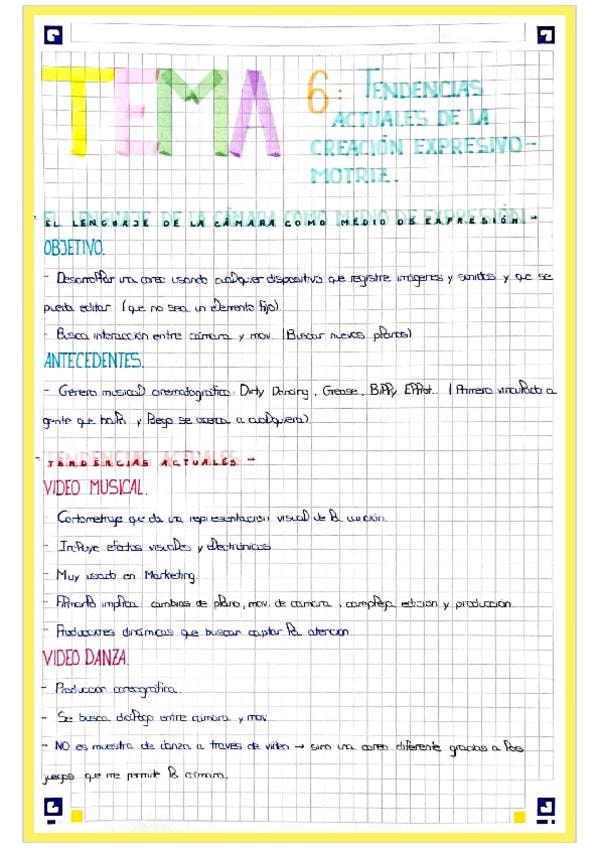 TEMA 6: TENDENCIAS
ACTUALES DE LA
CREACIÓN EXPRESIVO-
MOTRIZ.
EL LENGUAJE DE LA CÁMARA COMO MEDIO DE EXPRESIÓN -
OBJETIVO.
- Desarrollar una coreo usando cualquier dispositivo que registre imágenes y sonidos y que se
pueda editar (que no sea un elemento fijo)
- Busca interacción entre cámara y mov. (Buscar nuevos planos)
ANTECEDENTES.
- Género musical cinematográfico: Dirty Dancing, Grease, Billy Elliot.. (Primero vinculado a
gente que baila y luego se acerca a cualquiera)
- TENDENCIAS ACTUALES -
VIDEO MUSICAL.
- Cortometraje que da una representación visual de la canción.
- Incluye efectos visuales y electrónicos
- Muy usado en Marketing
- Filmarlo implica: cambios de plano, mov. de cámara, compleja edición y producción
- Producciones dinámicas que buscan captar la atención
VIDEO DANZA.
- Producción coreográfica.
- Se busca diálogo entre cámara y mov.
- NO es muestra de danza a través de video → sino una coreo diferente gracias a los
juegos que me permite la cámara.